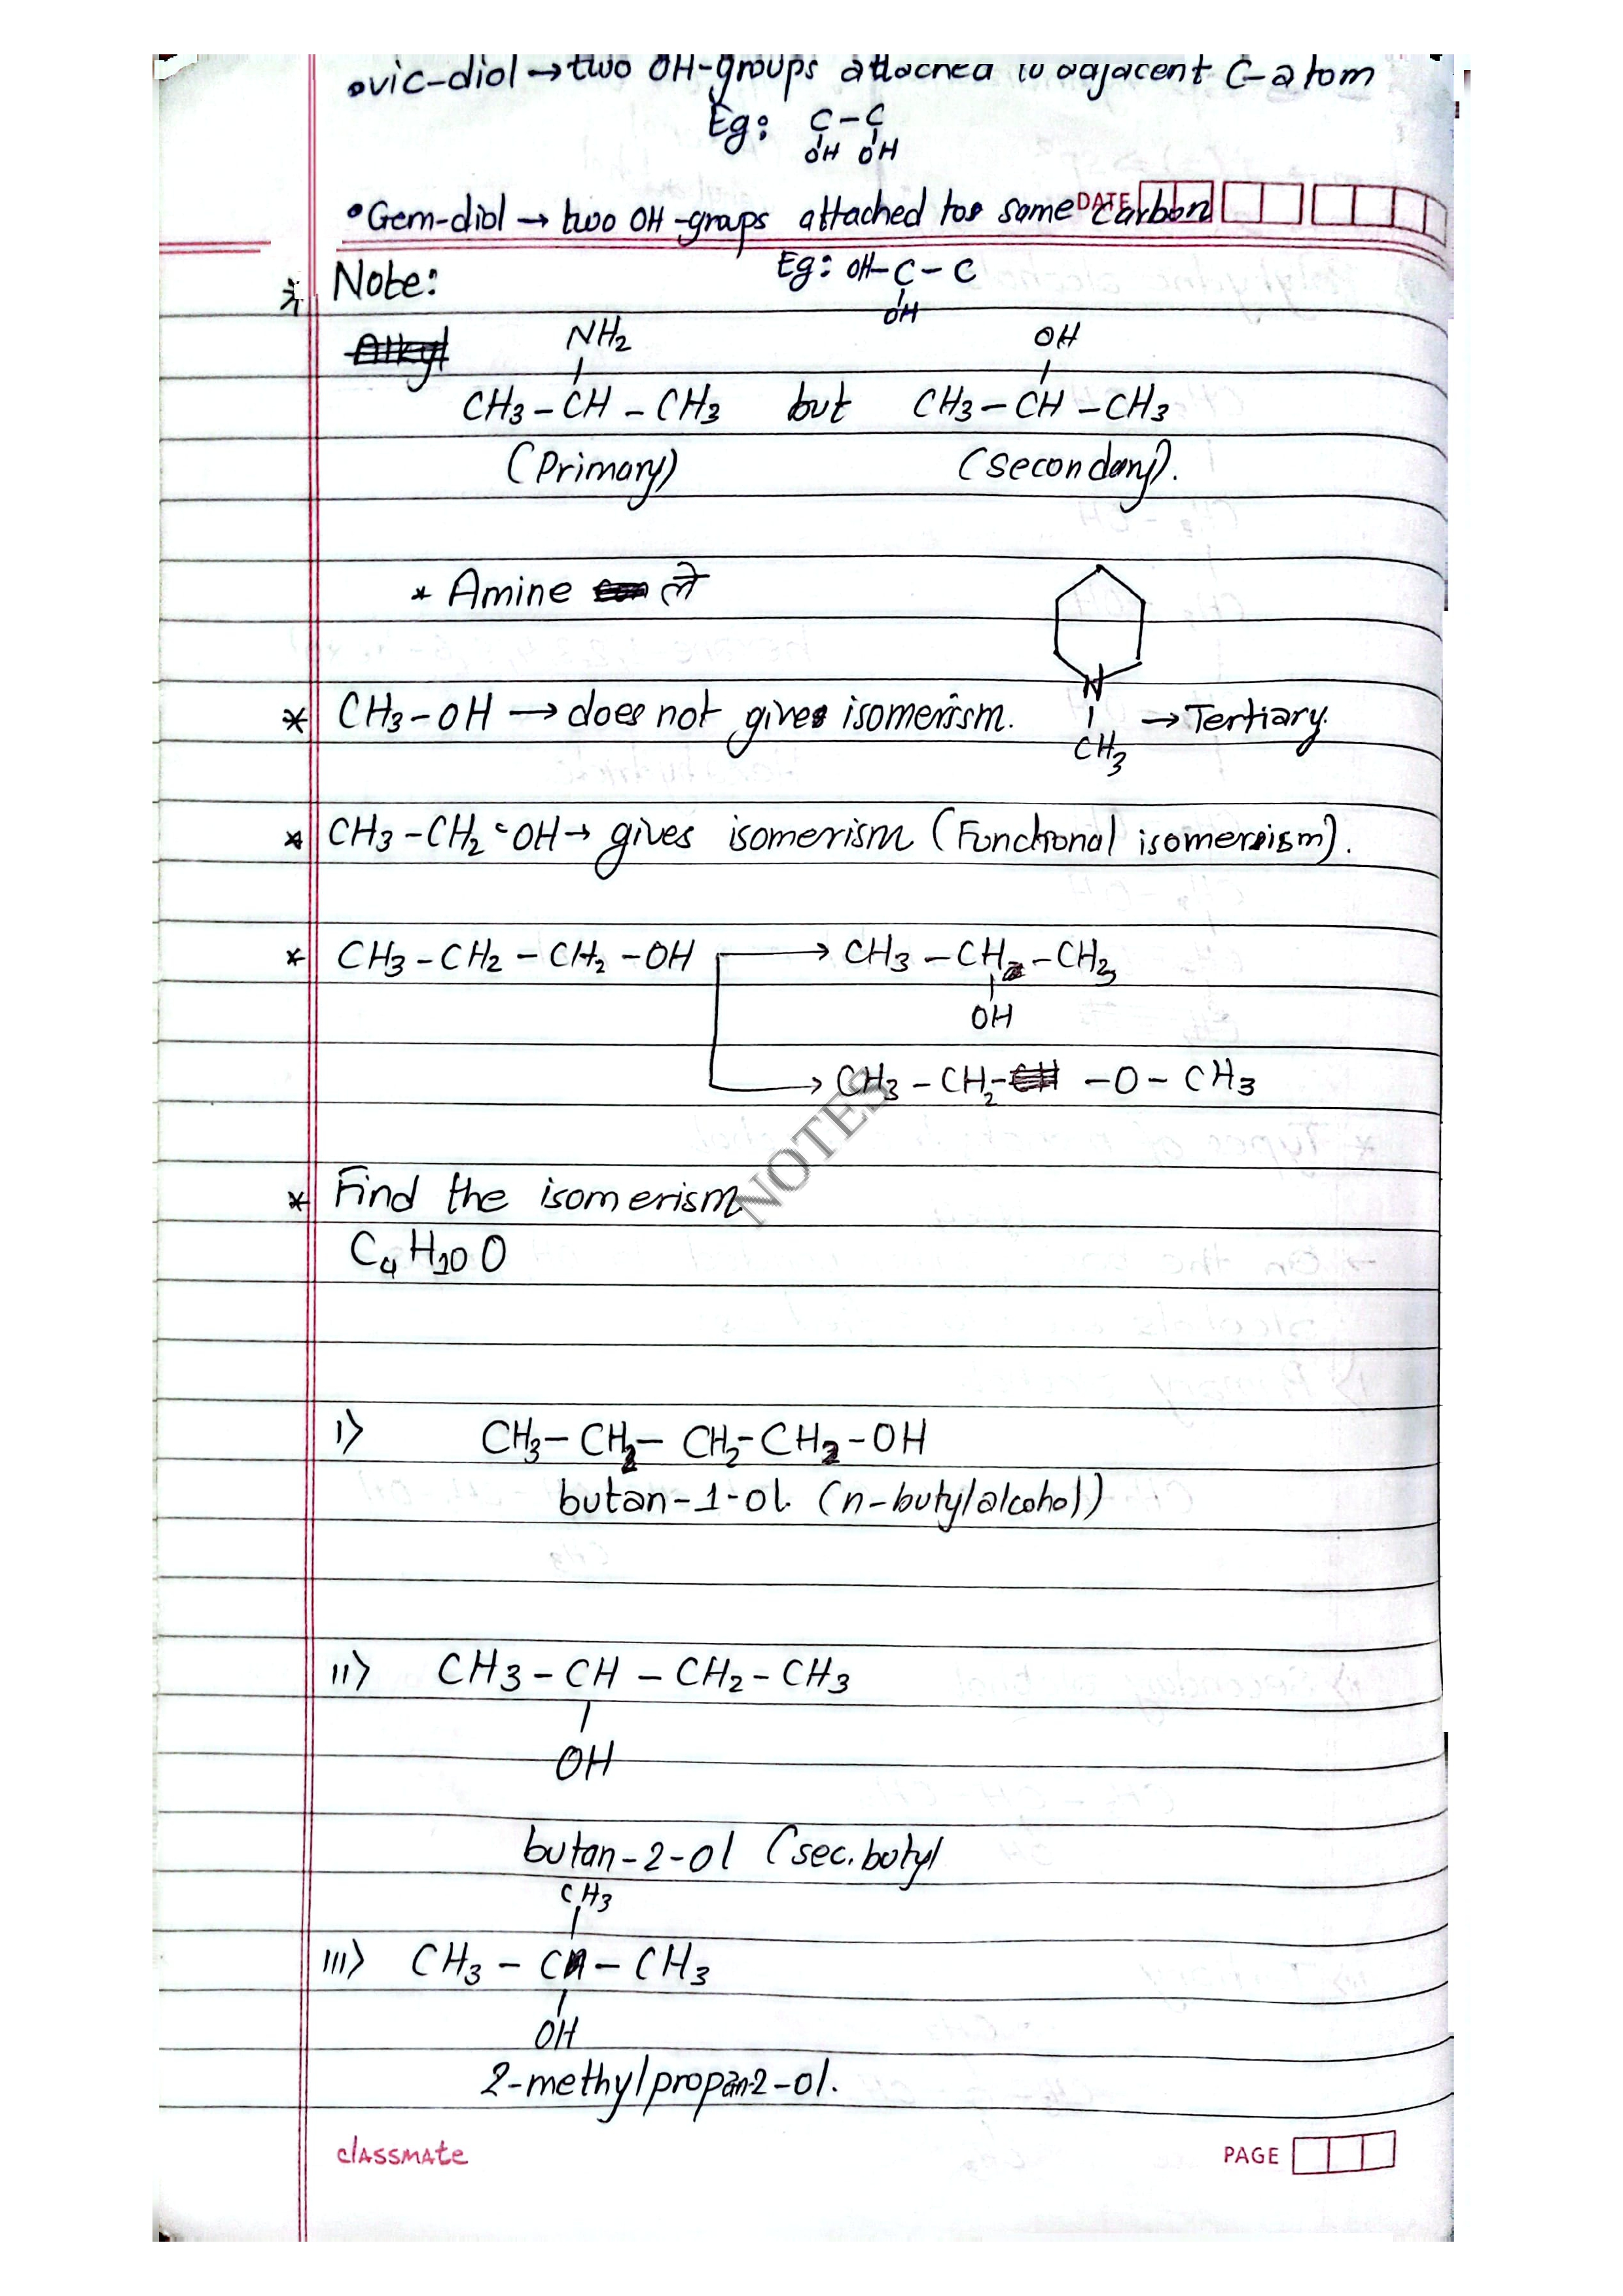 •vic-diol → two OH-groups attached to adjacent C-atom
Eg: C-C
OH OH
•Gem-diol → two OH-groups attached to same carbon
DATE
Note:
Eg: OH-C-C
OH
NH₂
OH
CH₃-CH-CH₃ but CH₃-CH-CH₃
(Primary) (secondary).
* Amine ले
N
* CH₃-OH → does not gives isomerism.
CH₃ → Tertiary.
* CH₃-CH₂-OH → gives isomerism (Functional isomerism).
* CH₃-CH₂-CH₂-OH → CH₃-CH-CH₃
OH
→ CH₃-CH₂-O-CH₃
NOTES
* Find the isomerism
C₄H₁₀O
i) CH₃-CH₂-CH₂-CH₂-OH
butan-1-ol (n-butylalcohol)
ii) CH₃-CH-CH₂-CH₃
OH
butan-2-ol (sec. butyl
CH₃
iii) CH₃-C-CH₃
OH
2-methylpropan-2-ol.
classmate
PAGE